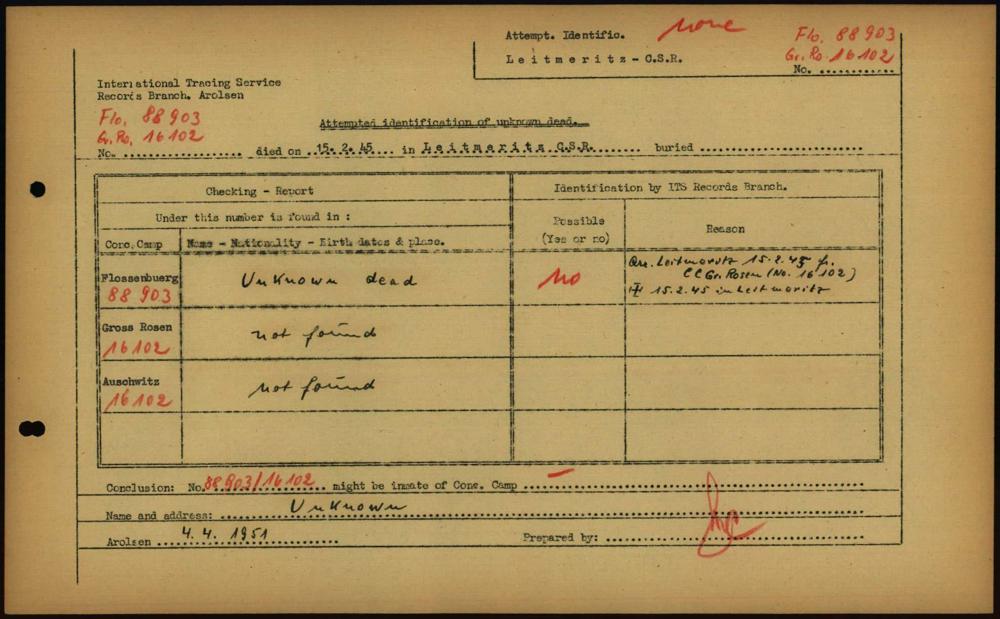 Attempt. Identific. none Flo. 88 903
Leitmeritz - C.S.R. Gr. Ro. 16 102
No. ............
International Tracing Service
Records Branch. Arolsen
Flo. 88 903
Gr. Ro. 16 102
Attempted identification of unknown dead.
No. .................. died on ..15.2.45.. in Leitmeritz C.S.R. ....... buried .........................
Checking - Report Identification by ITS Records Branch.
Under this number is found in : Possible (Yes or no) Reason
Conc. Camp Name - Nationality - Birth dates & place.
Flossenbuerg 88 903 Unknown dead no Arr. Leitmeritz 15.2.45 fr.
CC Gr. Rosen (No. 16 102)
15.2.45 in Leitmeritz
Gross Rosen 16 102 not found
Auschwitz 16 102 not found
Conclusion: No. 88 903/16 102 might be inmate of Conc. Camp ...–...............................
Name and address: ........ Unknown ........................................
Arolsen ... 4. 4. 1951 ............ Prepared by: ........................................